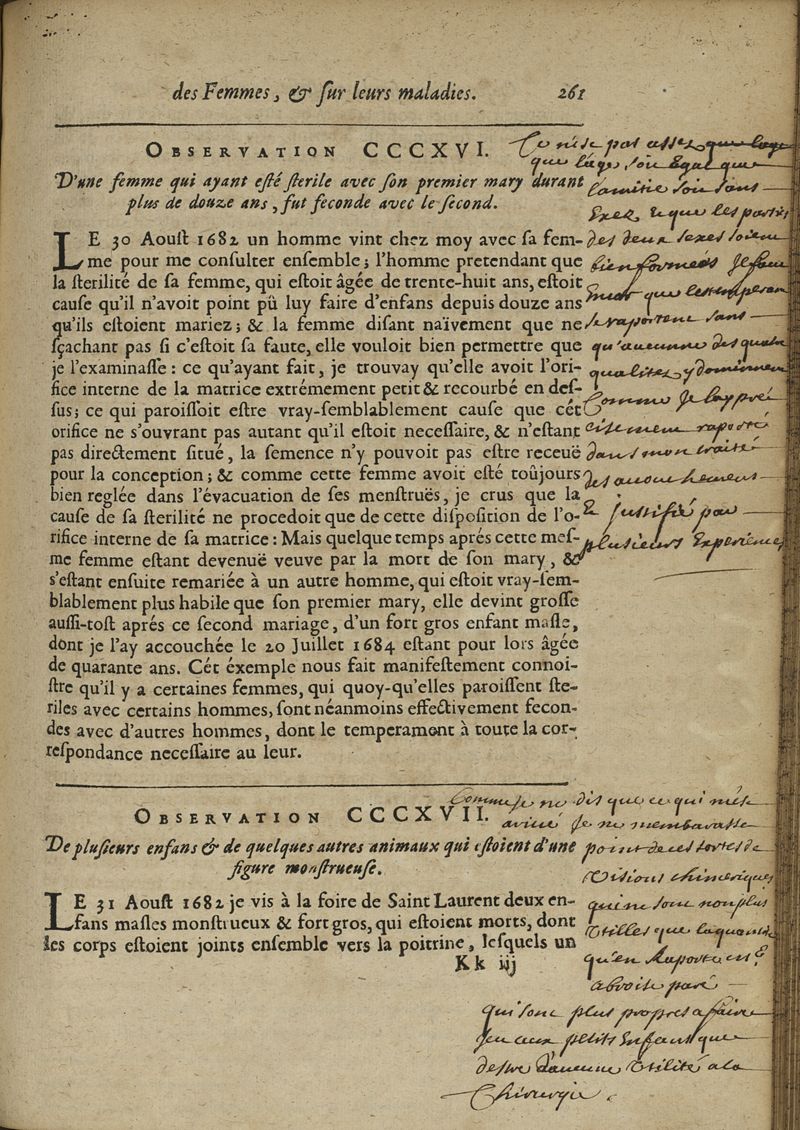 des Femmes, & ſur leurs maladies. 261
OBSERVATION CCCXVI.
D'une femme qui ayant eſté ſterile avec ſon premier mary durant
plus de douze ans, fut feconde avec le ſecond.
LE 30 Aouſt 1682 un homme vint chez moy avec ſa fem-
me pour me conſulter enſemble; l'homme pretendant que
la ſterilité de ſa femme, qui eſtoit âgée de trente-huit ans, eſtoit
cauſe qu'il n'avoit point pû luy faire d'enfans depuis douze ans
qu'ils eſtoient mariez; & la femme diſant naïvement que ne
ſçachant pas ſi c'eſtoit ſa faute, elle vouloit bien permettre que
je l'examinaſſe: ce qu'ayant fait, je trouvay qu'elle avoit l'ori-
fice interne de la matrice extrémement petit & recourbé en deſ-
ſus; ce qui paroiſſoit eſtre vray-ſemblablement cauſe que cét
orifice ne s'ouvrant pas autant qu'il eſtoit neceſſaire, & n'eſtant
pas directement ſitué, la ſemence n'y pouvoit pas eſtre receuë
pour la conception; & comme cette femme avoit eſté toûjours
bien reglée dans l'évacuation de ſes menſtruës, je crus que la
cauſe de ſa ſterilité ne procedoit que de cette diſpoſition de l'o-
rifice interne de ſa matrice: Mais quelque temps aprés cette meſ-
me femme eſtant devenuë veuve par la mort de ſon mary, &
s'eſtant enſuite remariée à un autre homme, qui eſtoit vray-ſem-
blablement plus habile que ſon premier mary, elle devint groſſe
auſſi-toſt aprés ce ſecond mariage, d'un fort gros enfant maſle,
dont je l'ay accouchée le 20 Juillet 1684 eſtant pour lors âgée
de quarante ans. Cét éxemple nous fait manifeſtement connoi-
ſtre qu'il y a certaines femmes, qui quoy-qu'elles paroiſſent ſte-
riles avec certains hommes, ſont néanmoins effectivement fecon-
des avec d'autres hommes, dont le temperament à toute la cor-
reſpondance neceſſaire au leur.
Ce n'est pas assez que lage
que lage soit Egal que
lamitie soit sans
que les partis
des deux sexes soient
bien formees Il faut
que
se raportent sans
qu'aucune des quatre
qualites y dominent
Comme Je lay
raporté
dans mon traité
des accouchemens
& Justifié par
plusieurs Experiences
OBSERVATION CCCXVII.
De pluſieurs enfans & de quelques autres animaux qui eſtoient d'une
figure monſtrueuſe.
LE 31 Aouſt 1682 je vis à la foire de Saint Laurent deux en-
fans maſles monſtrueux & fort gros, qui eſtoient morts, dont
les corps eſtoient joints enſemble vers la poitrine, leſquels un
Kk iij
Comme Je ne dis que ce qui m'est
arivé Je ne m'embarasse
point de ces sortes de
Visions chimeriques
qui ne sont non plus
Utilles que
qu'en Raporte
qui sont plus propres a faire
peur aux petits Enfans que
destre daucune Utilité a la
Chirurgie.